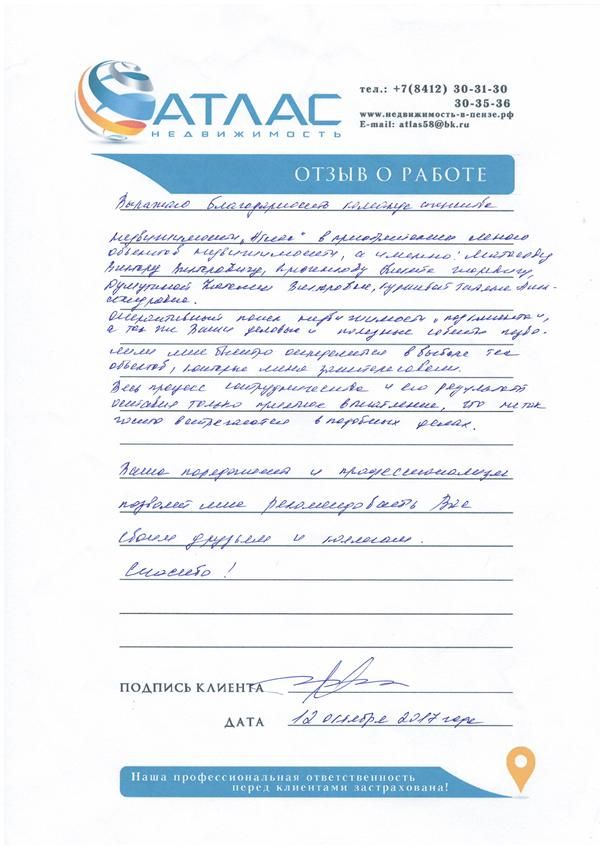 АТЛАС
НЕДВИЖИМОСТЬ
тел.: +7(8412) 30-31-30
30-35-36
www.недвижимость-в-пензе.рф
E-mail: atlas58@bk.ru
ОТЗЫВ О РАБОТЕ
Выражаю благодарность команде
недвижимости "Атлас" в приобретении
объектов недвижимости, а именно:
Виктору Викторовичу,
Викторовне,
Оперативный поиск недвижимости
а так же Ваши деловые и полезные советы позво-
мне быстро определиться в выборе тех
объектов, которые меня заинтересовали.
Весь процесс сотрудничества и его результат
оставил только приятное впечатление, что не так
часто встречается в подобных делах.
Ваша порядочность и профессионализм
позволяет мне рекомендовать Вас
своим друзьям и коллегам.
Спасибо!
ПОДПИСЬ КЛИЕНТА
ДАТА 12 октября 2017 года
Наша профессиональная ответственность
перед клиентами застрахована!